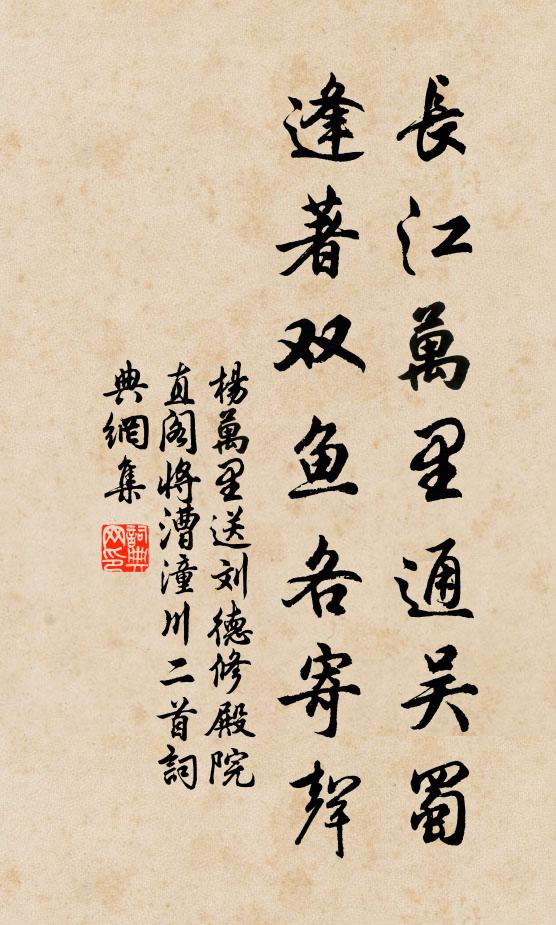 長江萬里通吴蜀
逢著双鱼各寄聲
楊萬里送刘德修殿院
直阁将漕潼川二首詞
典網集
詞典网印